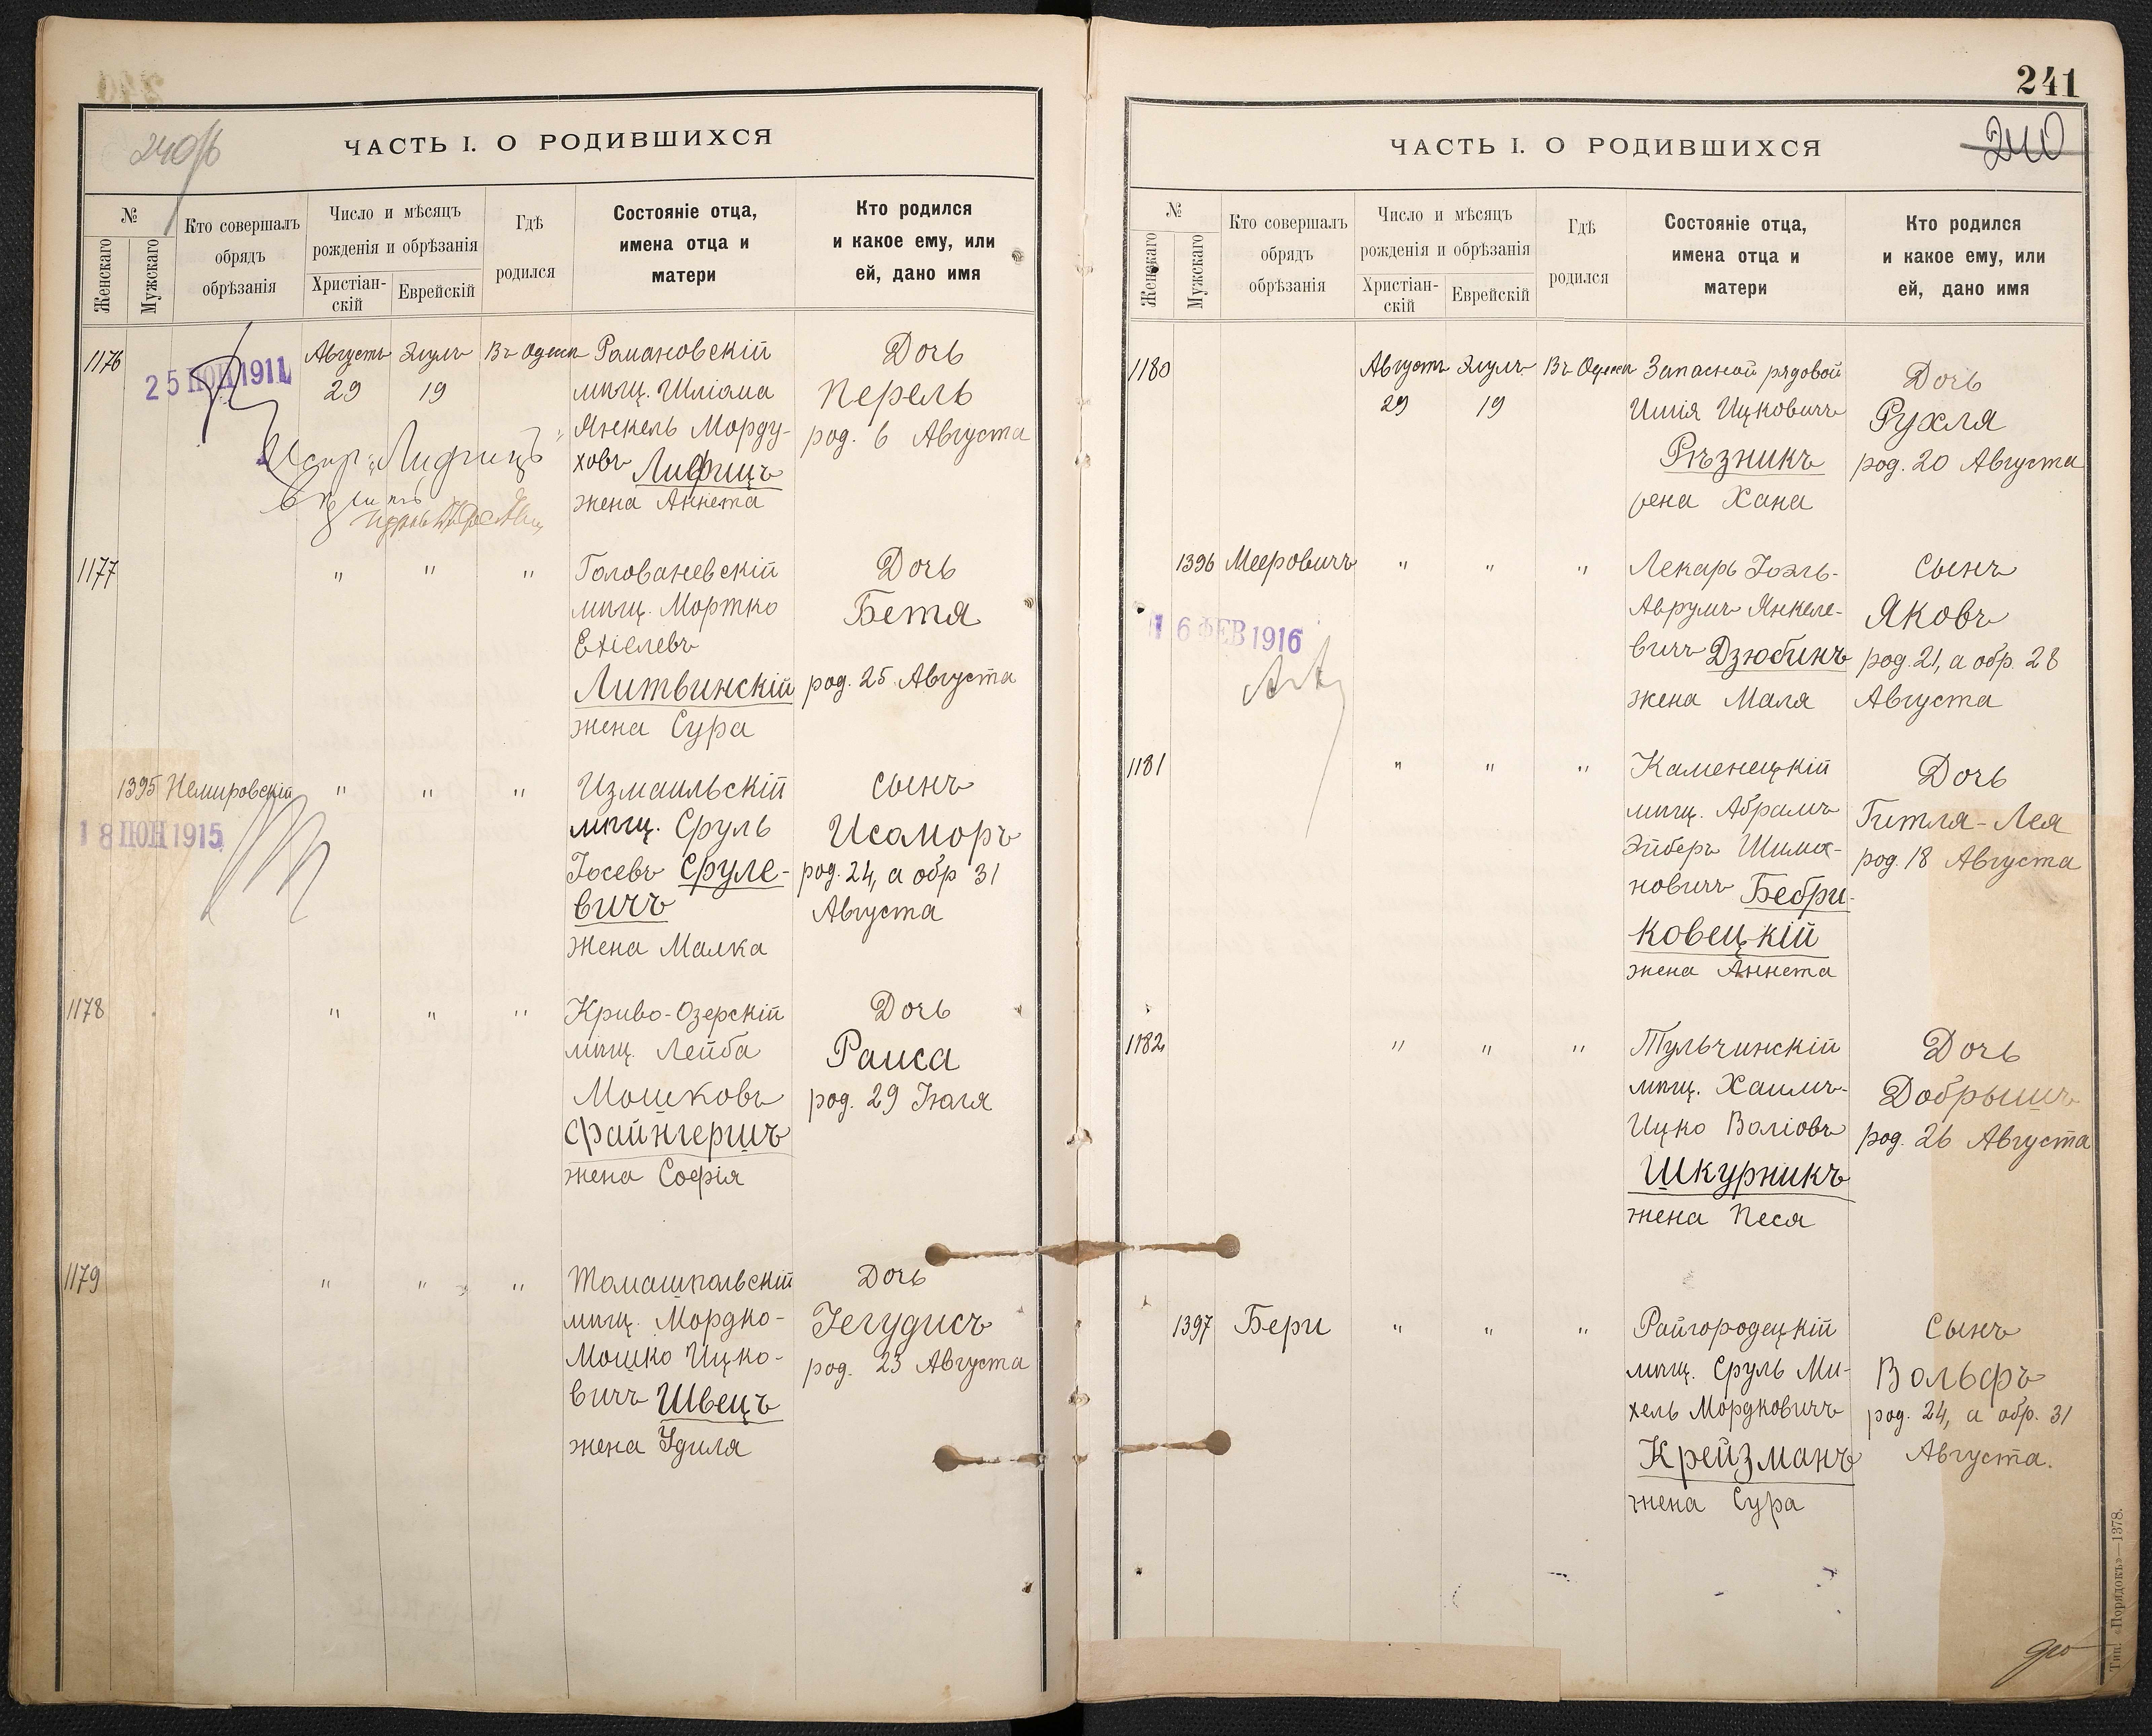 240/б
ЧАСТЬ I. О РОДИВШИХСЯ
№
Женскаго
Мужскаго
Кто совершалъ
обрядъ
обрѣзанія
Число и мѣсяцъ
рожденія и обрѣзанія
Христіан-
скій
Еврейскій
Гдѣ
родился
Состояніе отца,
имена отца и
матери
Кто родился
и какое ему, или
ей, дано имя
1176
25 ІЮН 1911
Августъ Элулъ Въ Одессѣ
29 19
Романовскій
мѣщ. Шліома
Янкель Морду-
ховъ Лифшицъ
жена Аннета
Дочь
Перель
род. 6 Августа
1177
" " "
Голованевскій
мѣщ. Мортко
Ехіелевъ
Литвинскій
жена Сура
Дочь
Бетя
род. 25 Августа
1395 Немировскій
18 ІЮН 1915
" " "
Измаильскій
мѣщ. Сруль
Іосевъ Сруле-
вичъ
жена Малка
Сынъ
Исаморъ
род. 24, а обр 31
Августа
1178
" " "
Криво-Озерскій
мѣщ. Лейба
Мошковъ
Файнгершъ
жена Софія
Дочь
Раиса
род. 29 Іюля
1179
" " "
Томашпольскій
мѣщ. Мордко-
Мошко Ицко-
вичъ Швецъ
жена Удиля
Дочь
Іегудисъ
род. 23 Августа
241
240
ЧАСТЬ I. О РОДИВШИХСЯ
№
Женскаго
Мужскаго
Кто совершалъ
обрядъ
обрѣзанія
Число и мѣсяцъ
рожденія и обрѣзанія
Христіан-
скій
Еврейскій
Гдѣ
родился
Состояніе отца,
имена отца и
матери
Кто родился
и какое ему, или
ей, дано имя
1180
Августъ Элулъ Въ Одессѣ
29 19
Запасной рядовой
Ицковичъ
Рѣзникъ
жена Хана
Дочь
Рухля
род. 20 Августа
1396 Мееровичъ
6 ФЕВ 1916
" " "
Лекарь Іоэль-
Аврумъ Янкеле-
вичъ Дзюбинъ
жена Маля
Сынъ
Яковъ
род. 21, а обр. 28
Августа
1181
" " "
Каменецкій
мѣщ. Абрамъ
Эйберъ Шима-
новичъ Бебри-
ковецкій
жена Аннета
Дочь
Гитля-Лея
род. 18 Августа
1182
" " "
Тульчинскій
мѣщ. Хаимъ-
Ицко Воліовъ
Шкурникъ
жена Песя
Дочь
Добрышъ
род. 26 Августа
1397 Бери
" " "
Райгородецкій
мѣщ. Сруль Ми-
хель Мордковичъ
Крейзманъ
жена Сура
Сынъ
Вольфъ
род. 24, а обр. 31
Августа.
Тип. «Порядокъ»—1378.